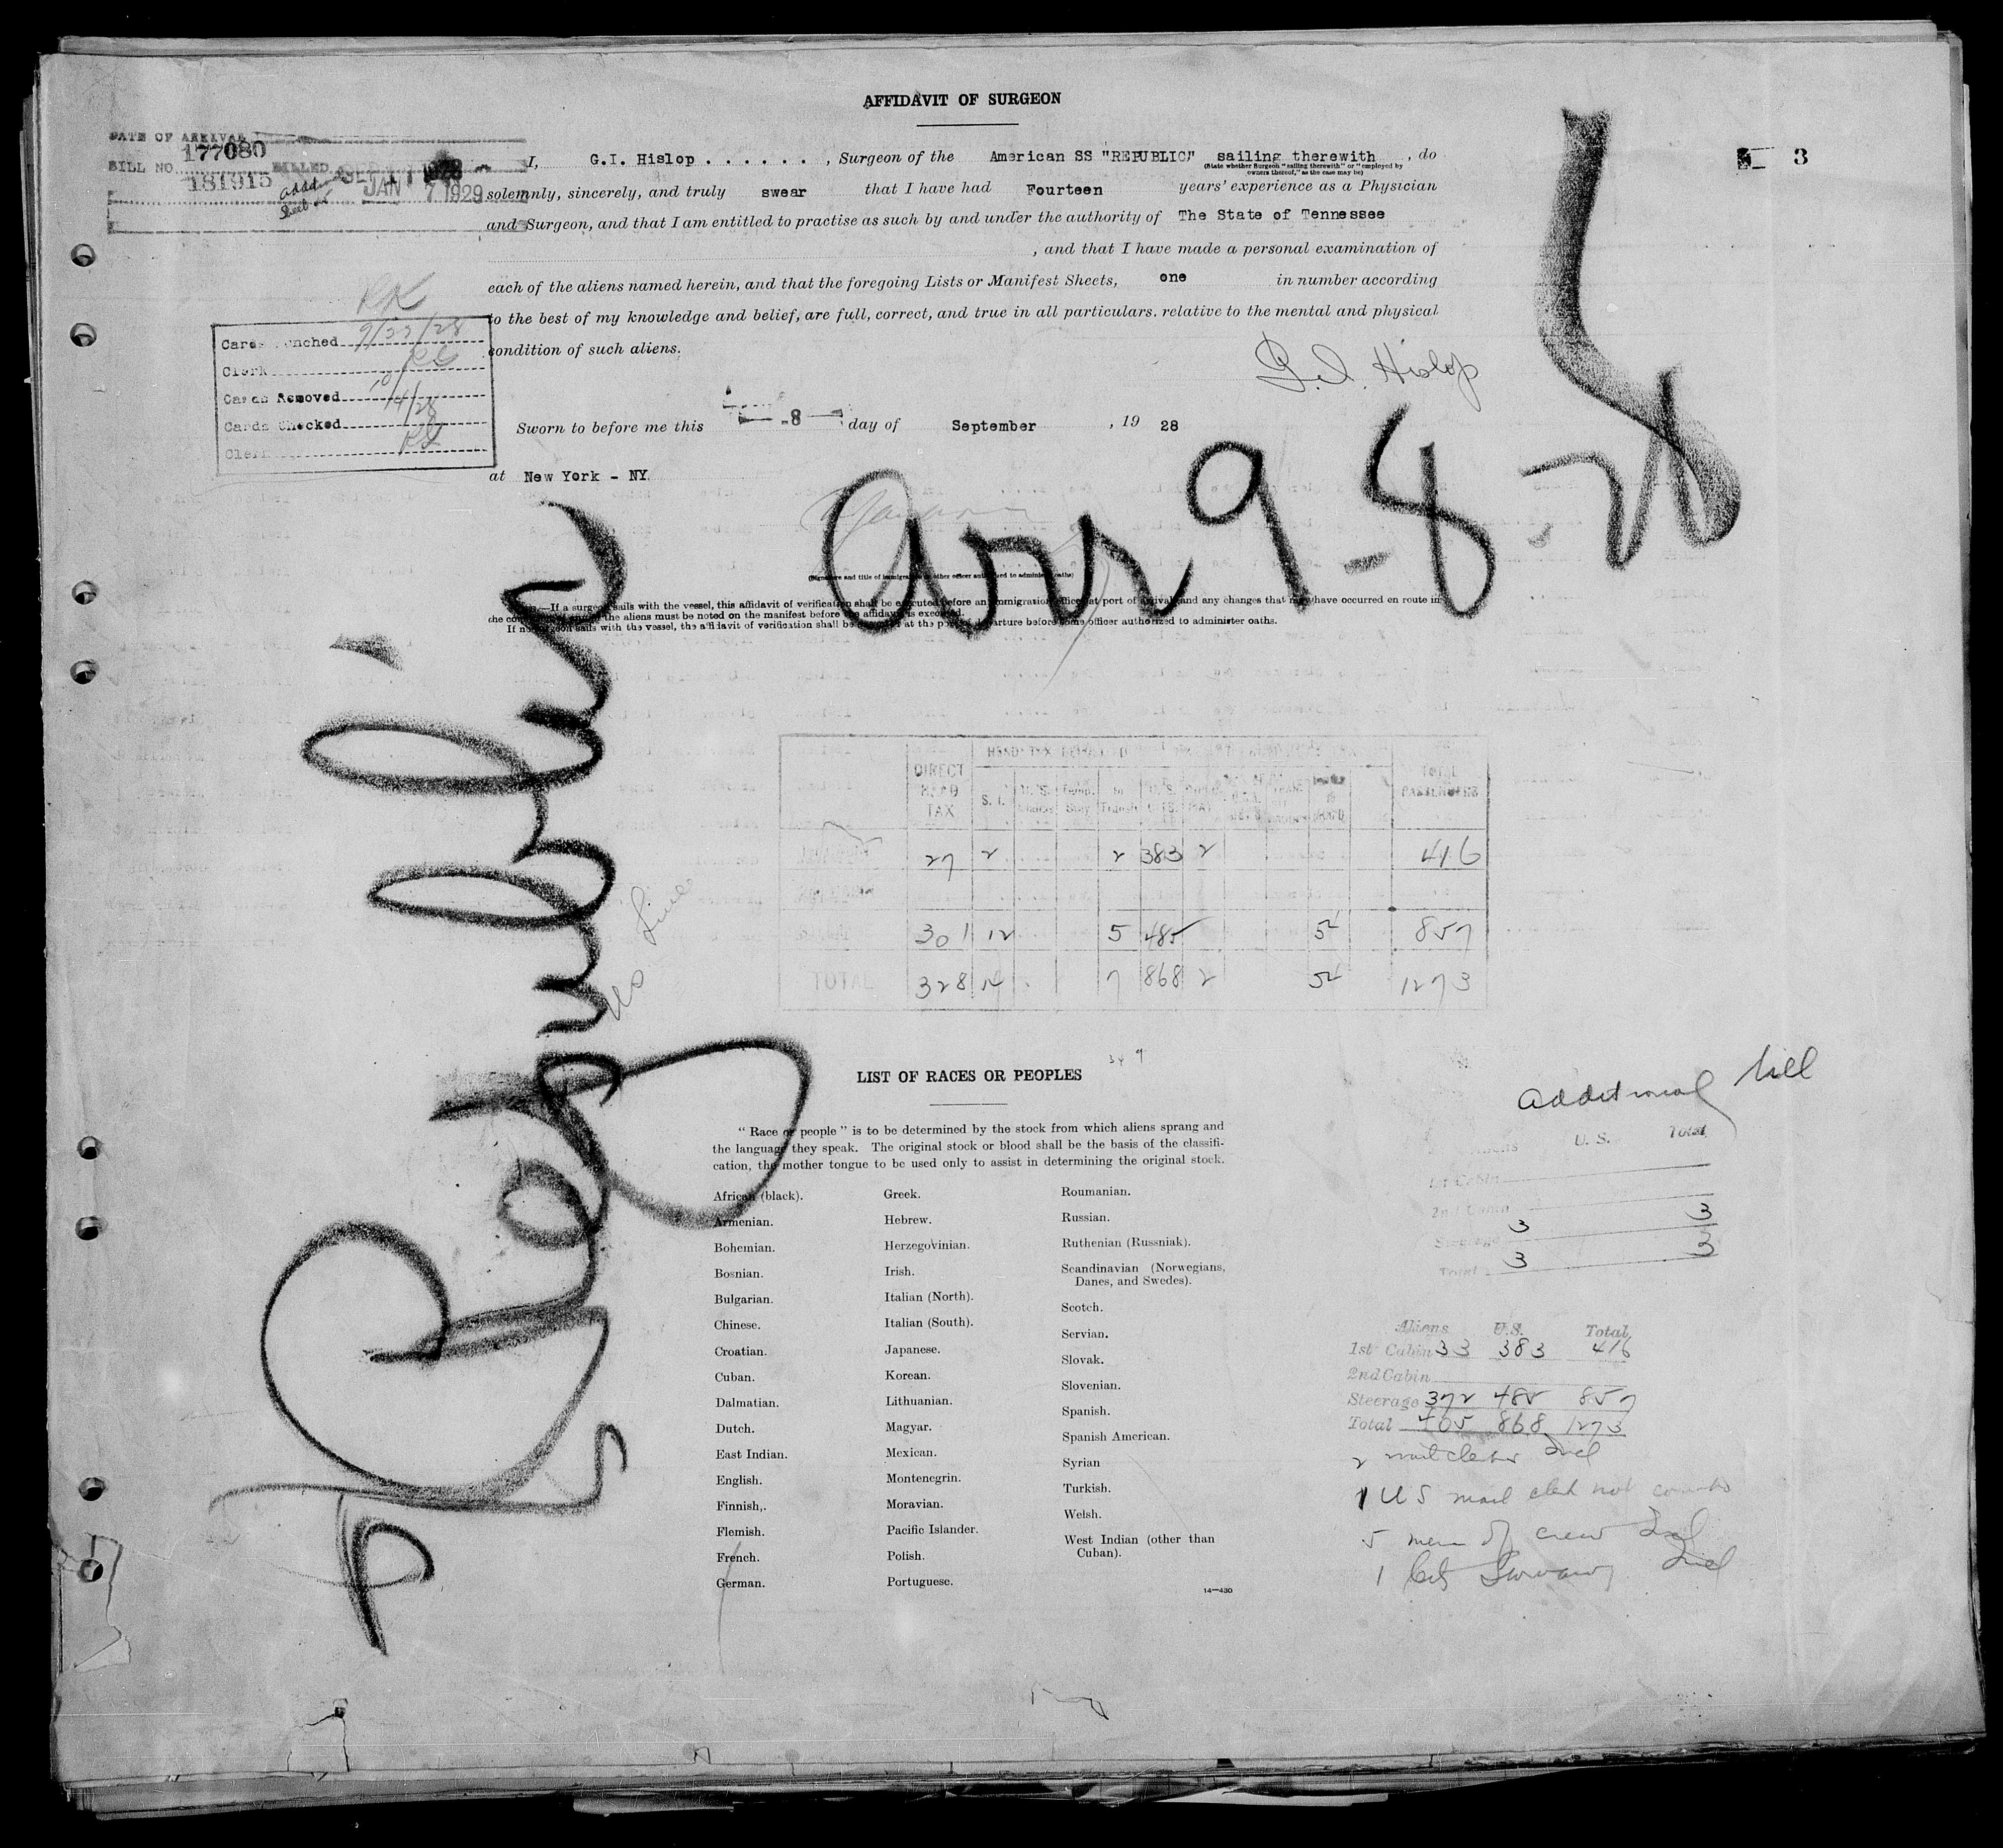 AFFIDAVIT OF SURGEON
DATE OF ARRIVAL
177080
BILL NO. BILLED
181915
JAN 7 1929
3
I, G.I. Hislop . . . . . . . , Surgeon of the American SS "REPUBLIC" sailing therewith , do
(State whether Surgeon "sailing therewith" or "employed by
owners thereof," as the case may be)
solemnly, sincerely, and truly swear that I have had Fourteen years' experience as a Physician
and Surgeon, and that I am entitled to practise as such by and under the authority of The State of Tennessee
, and that I have made a personal examination of
each of the aliens named herein, and that the foregoing Lists or Manifest Sheets, one in number according
to the best of my knowledge and belief, are full, correct, and true in all particulars. relative to the mental and physical
condition of such aliens.
G.I. Hislop
RK
Cards Punched 9/22/28
Clerk
Cards Removed 10/14/28
Cards Checked
Clerk
Sworn to before me this 8 day of September , 19 28
at New York - NY.
Arr 9-8-28
Republic
US Lines
(Signature and title of immigration or other officer authorized to administer oaths)
If a surgeon sails with the vessel, this affidavit of verification shall be executed before an immigration officer at port of arrival, and any changes that may have occurred en route in
the condition of the aliens must be noted on the manifest before the affidavit is executed.
If no surgeon sails with the vessel, the affidavit of verification shall be executed at the port of departure before some officer authorized to administer oaths.
DIRECT HEAD TAX S. I. Temp. Stay In Transit U. S. TOTAL PASSENGERS
27 2 2 383 2 416
301 12 5 485 54 857
TOTAL 328 14 7 868 2 54 1273
LIST OF RACES OR PEOPLES
"Race or people" is to be determined by the stock from which aliens sprang and
the language they speak. The original stock or blood shall be the basis of the classifi-
cation, the mother tongue to be used only to assist in determining the original stock.
African (black).
Armenian.
Bohemian.
Bosnian.
Bulgarian.
Chinese.
Croatian.
Cuban.
Dalmatian.
Dutch.
East Indian.
English.
Finnish,.
Flemish.
French.
German.
Greek.
Hebrew.
Herzegovinian.
Irish.
Italian (North).
Italian (South).
Japanese.
Korean.
Lithuanian.
Magyar.
Mexican.
Montenegrin.
Moravian.
Pacific Islander.
Polish.
Portuguese.
Roumanian.
Russian.
Ruthenian (Russniak).
Scandinavian (Norwegians,
Danes, and Swedes).
Scotch.
Servian.
Slovak.
Slovenian.
Spanish.
Spanish American.
Syrian
Turkish.
Welsh.
West Indian (other than
Cuban).
14—430
Additional bill
U. S. Total
1st Cabin
2nd Cabin
Steerage 3 3
Total 3 3
Aliens U.S. Total
1st Cabin 33 383 416
2nd Cabin
Steerage 372 485 857
Total 405 868 1273
2 mail clerks Incl
1 US mail clerk not counted
5 men of crew Incl